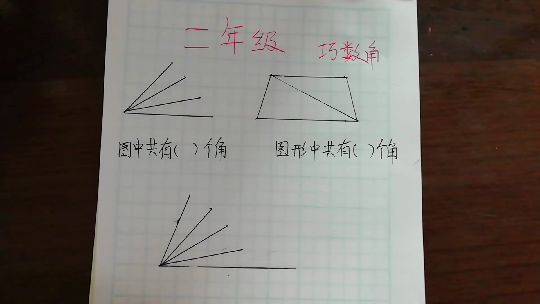 二年级 巧数角
图中共有( )个角 图形中共有( )个角